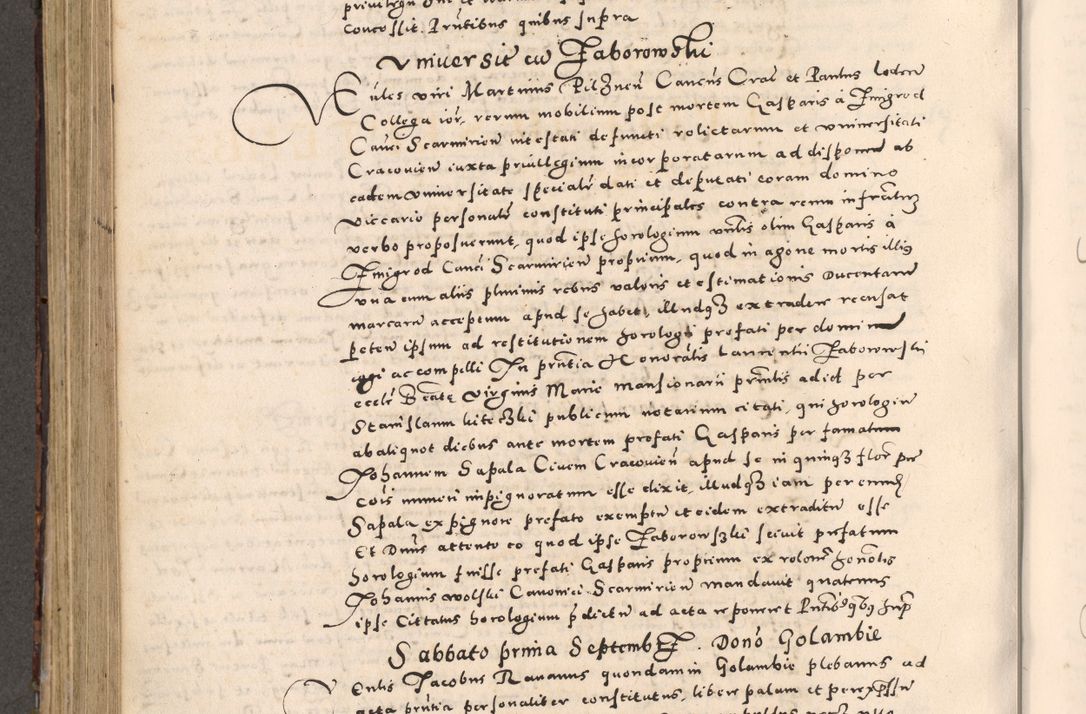 Concessit. Presentibus quibus supra
Universit cu Zaborowski
Eules viri Martinus Pilznen Canens Crac et Pantus
Collega ior, rerum mobilium post mortem Gasparis à Zmigrod
Canci Scarmirien intestati defuncti relictarum et universitati
Cracovien iuxta privillegium incorporatarum ad dispone ab
eadem universitate specialr dati et deputati coram domino
viccario personalr constituti principales contra reum infrascrtz
verbo proposuerunt, quod ipse horologium olim Gasparis à
Zmigrod Canci Scarmirien proprium, quod in agone mortis illius
una cum aliis plurimis rebus valoris et estimationis Ducentarum
marcarum acceptum apud se habet, illudqz extradere recusat
peten ipsum ad restitutionem horologii prefati per dominum
cogi ac compelli In prntia Honorabilis Laurentii Zaborowski
eccle Beate Virginis Marie mansionarii prntis adid per
Stanislaum publicum notarium citati, qui horologium
ab aliquot diebus ante mortem prefati Gasparis per famatum
Johannem Sapala Civem Cracovien apud se in quinqz flor
cois numeri inpignoratum esse dixit, illudqz iam per eundem
Sapala ex pignore prefato exemptu et eidem extraditu esse
Et Dnus attento eo quod ipse Zaborowszki scivit prefatum
horologium fuisse prefati Gasparis proprium ex honorabilis
Johannis Wolski Canonici Scarmirien mandavit quatenus
ipse Cittatus horologium pdictu ad acta reponeret Pntibus qbus supra
Sabbato prima Septembr. Dono Golambie
Enlis Jacobus Ravanus quondam in Golambie plebanus ad
acta prntia personaliter constitutus, libere palam et per expressu